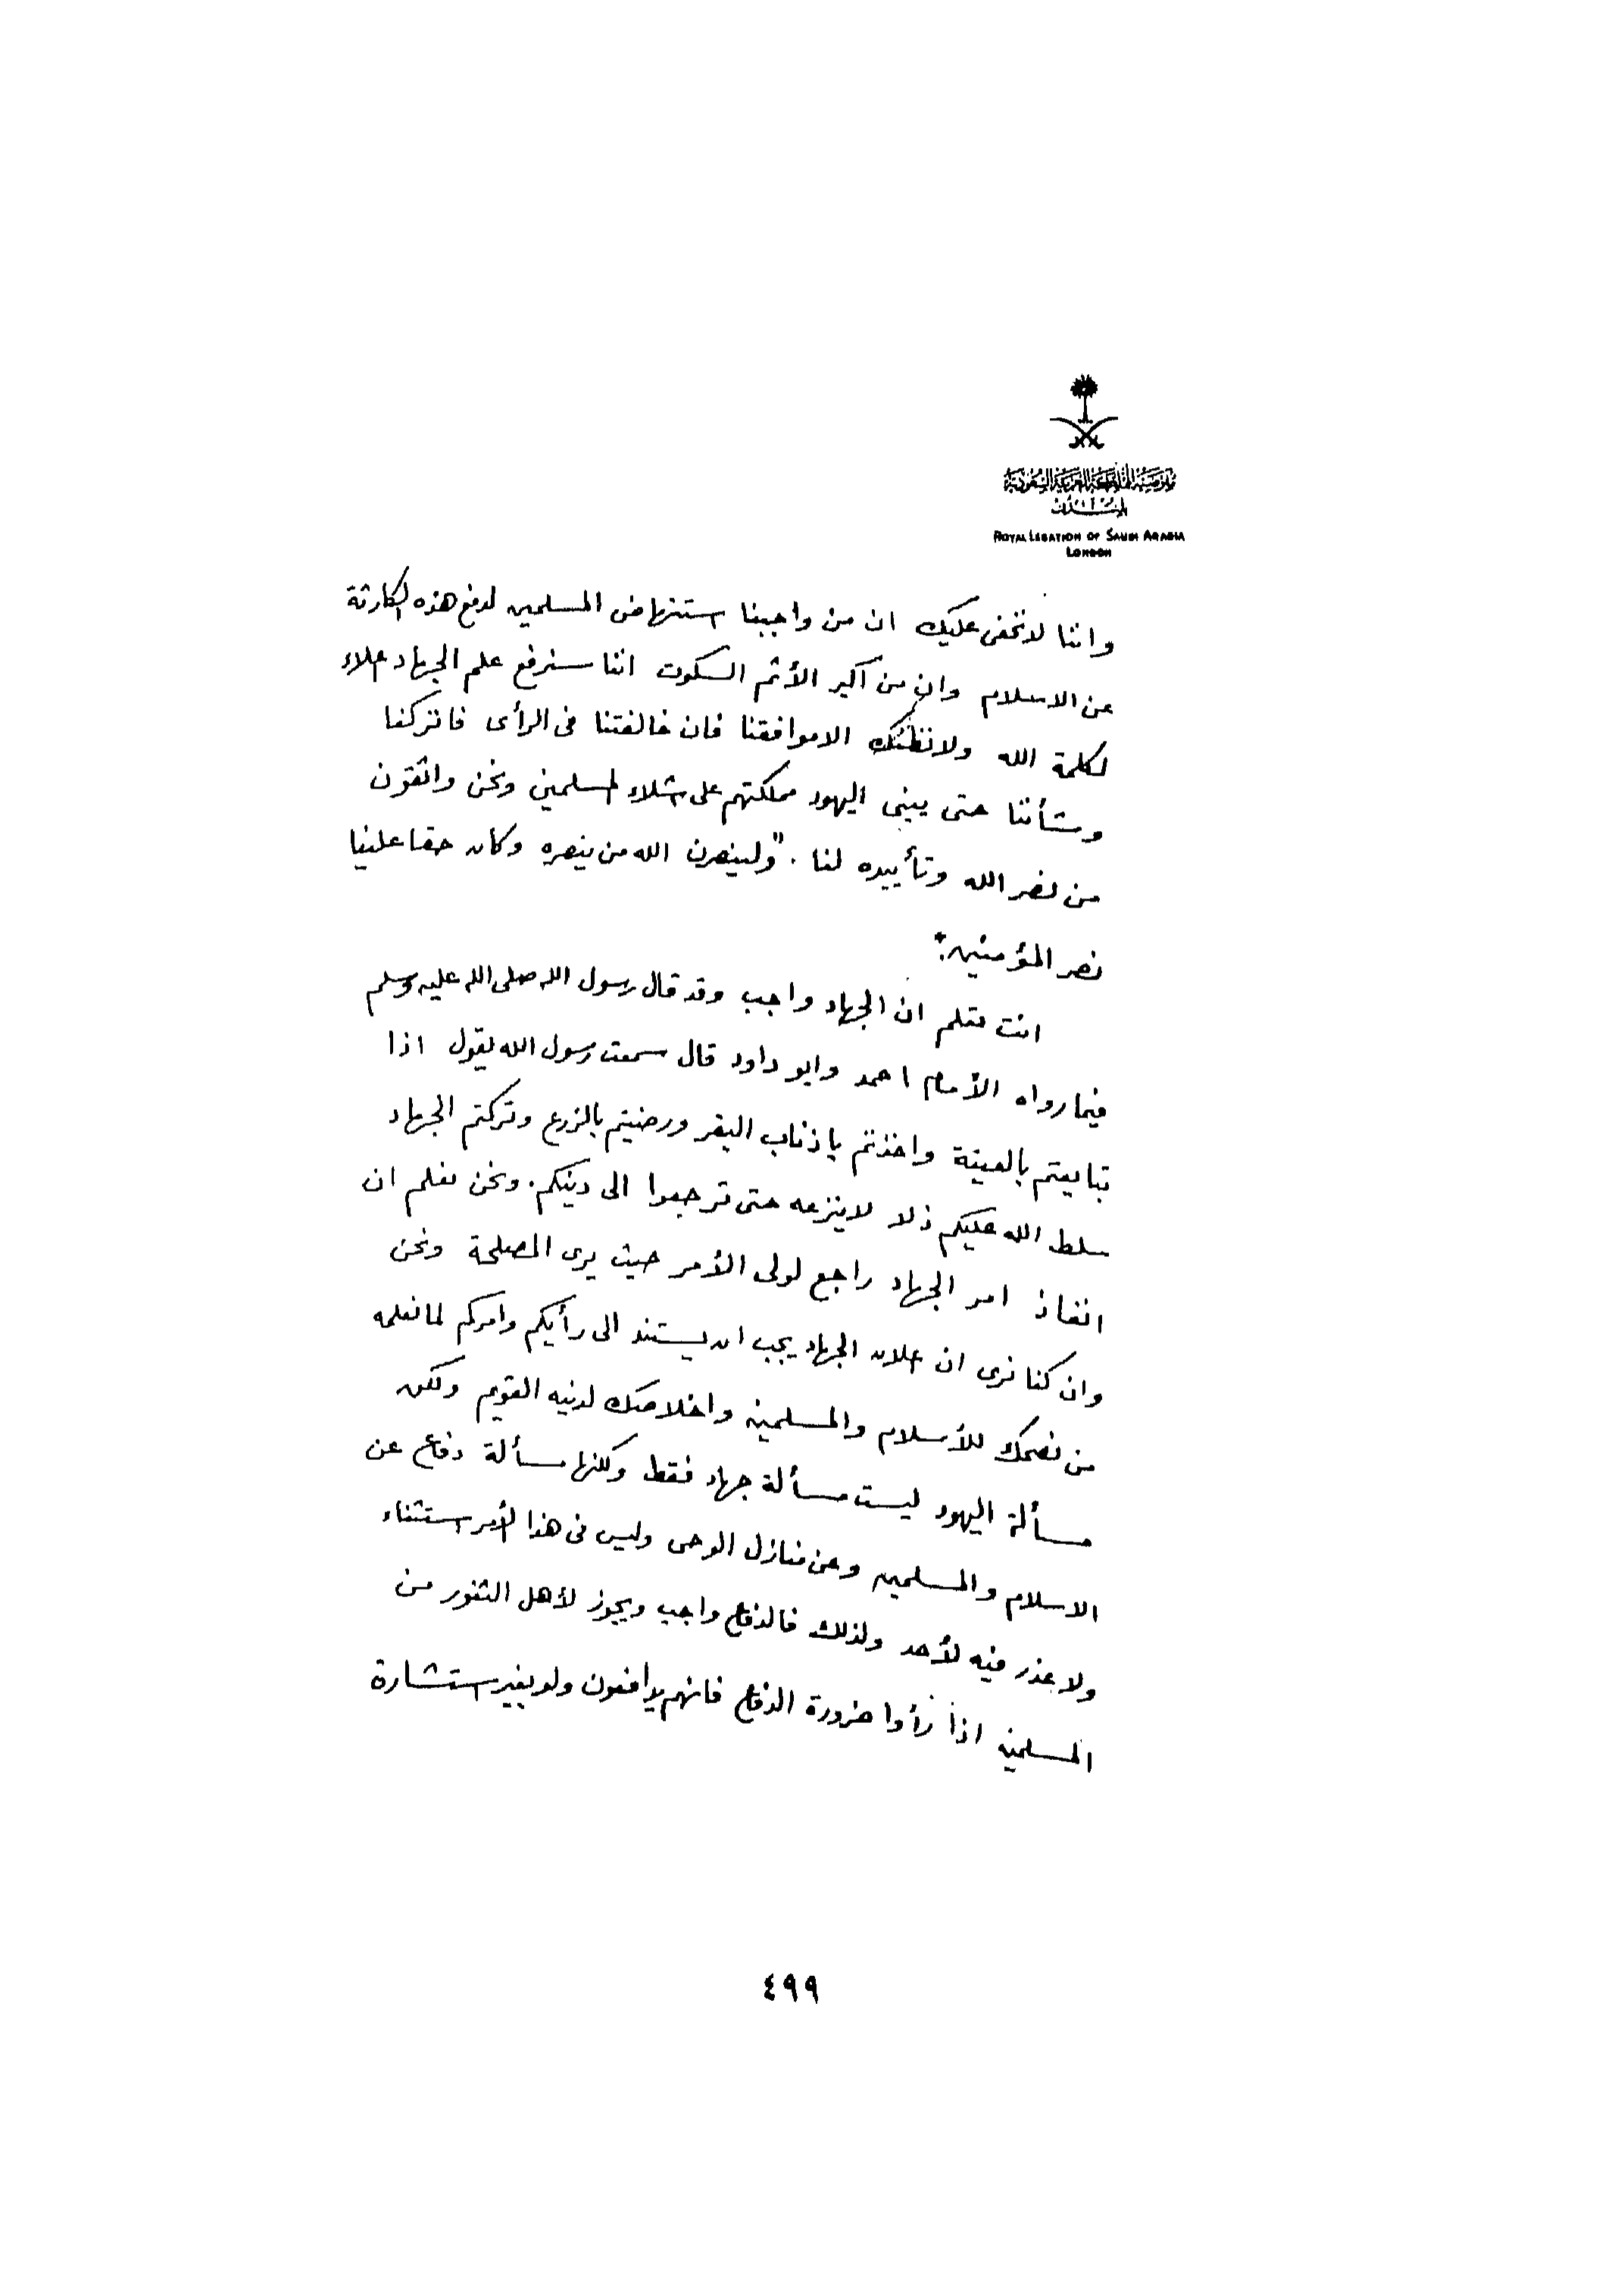 مفوضية المملكة العربية السعودية
لندن
ROYAL LEGATION OF SAUDI ARABIA
LONDON
واننا لا نخفى عليك ان من واجبنا استنهاض المسلمين لدفع هذه الكارثة
عن الاسلام وان من اكبر الأثم السكوت اننا سنرفع علم الجهاد علاء
لكلمة الله ولا نظنك الا موافقنا فان خالفتنا فى الرأى فاتركنا
وشأننا حتى يبنى اليهود مملكتهم على شلاء لمسلمين ونحن واثقون
من نصر الله وتأييده لنا . "ولينصرن الله من ينصره وكان حقا علينا
نصر المؤمنين"
انت تعلم ان الجهاد واجب وقد قال رسول الله صلى الله عليه وسلم
فيما رواه الأمام احمد وابو داود قال سمعت رسول الله يقول اذا
تبايعتم بالعينة واخذتم باذناب البقر ورضيتم بالزرع وتركتم الجهاد
سلط الله عليكم ذلا لا ينزعه حتى ترجعوا الى دينكم. ونحن نعلم ان
انفاذ امر الجهاد راجع لولى الأمر حيث يرى المصلحة ونحن
وان كنا نرى ان علان الجهاد يجب ان يستند الى رأيكم وامركم لما نعلمه
من نصحك للأسلام والمسلمين واخلاصك لدينه القويم ولكن
مسألة اليهود ليست مسألة جهاد فقط ولكنها مسألة دفاع عن
الاسلام والمسلمين وعن منازل الوحى وليس فى هذا لأمر استثناء
ولا عذر فيه لأحد ولذلك فالدفاع واجب ويجوز لأهل الثغور من
المسلمين اذا رأوا ضرورة الدفاع فانهم يدافعون ولو بغير استشارة
٤٩٩